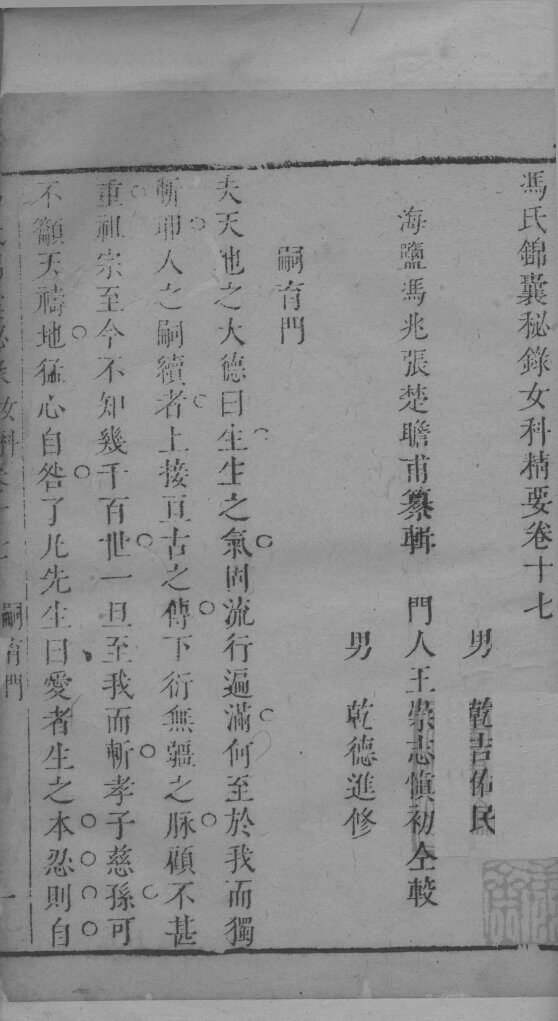 馮氏錦囊秘錄女科精要卷十七
男 乾吉佑民
海鹽馮兆張楚瞻甫纂輯 門人王崇志慎初仝較
男 乾德進修
嗣育門
夫天地之大德曰生生之氣固流行遍滿何至於我而獨
斬耶人之嗣續者上接亘古之傳下衍無疆之脉顧不甚
重祖宗至今不知幾千百世一旦至我而斬孝子慈孫可
不籲天禱地猛心自咎了凡先生曰愛者生之本忍則自
女科 嗣育門 一